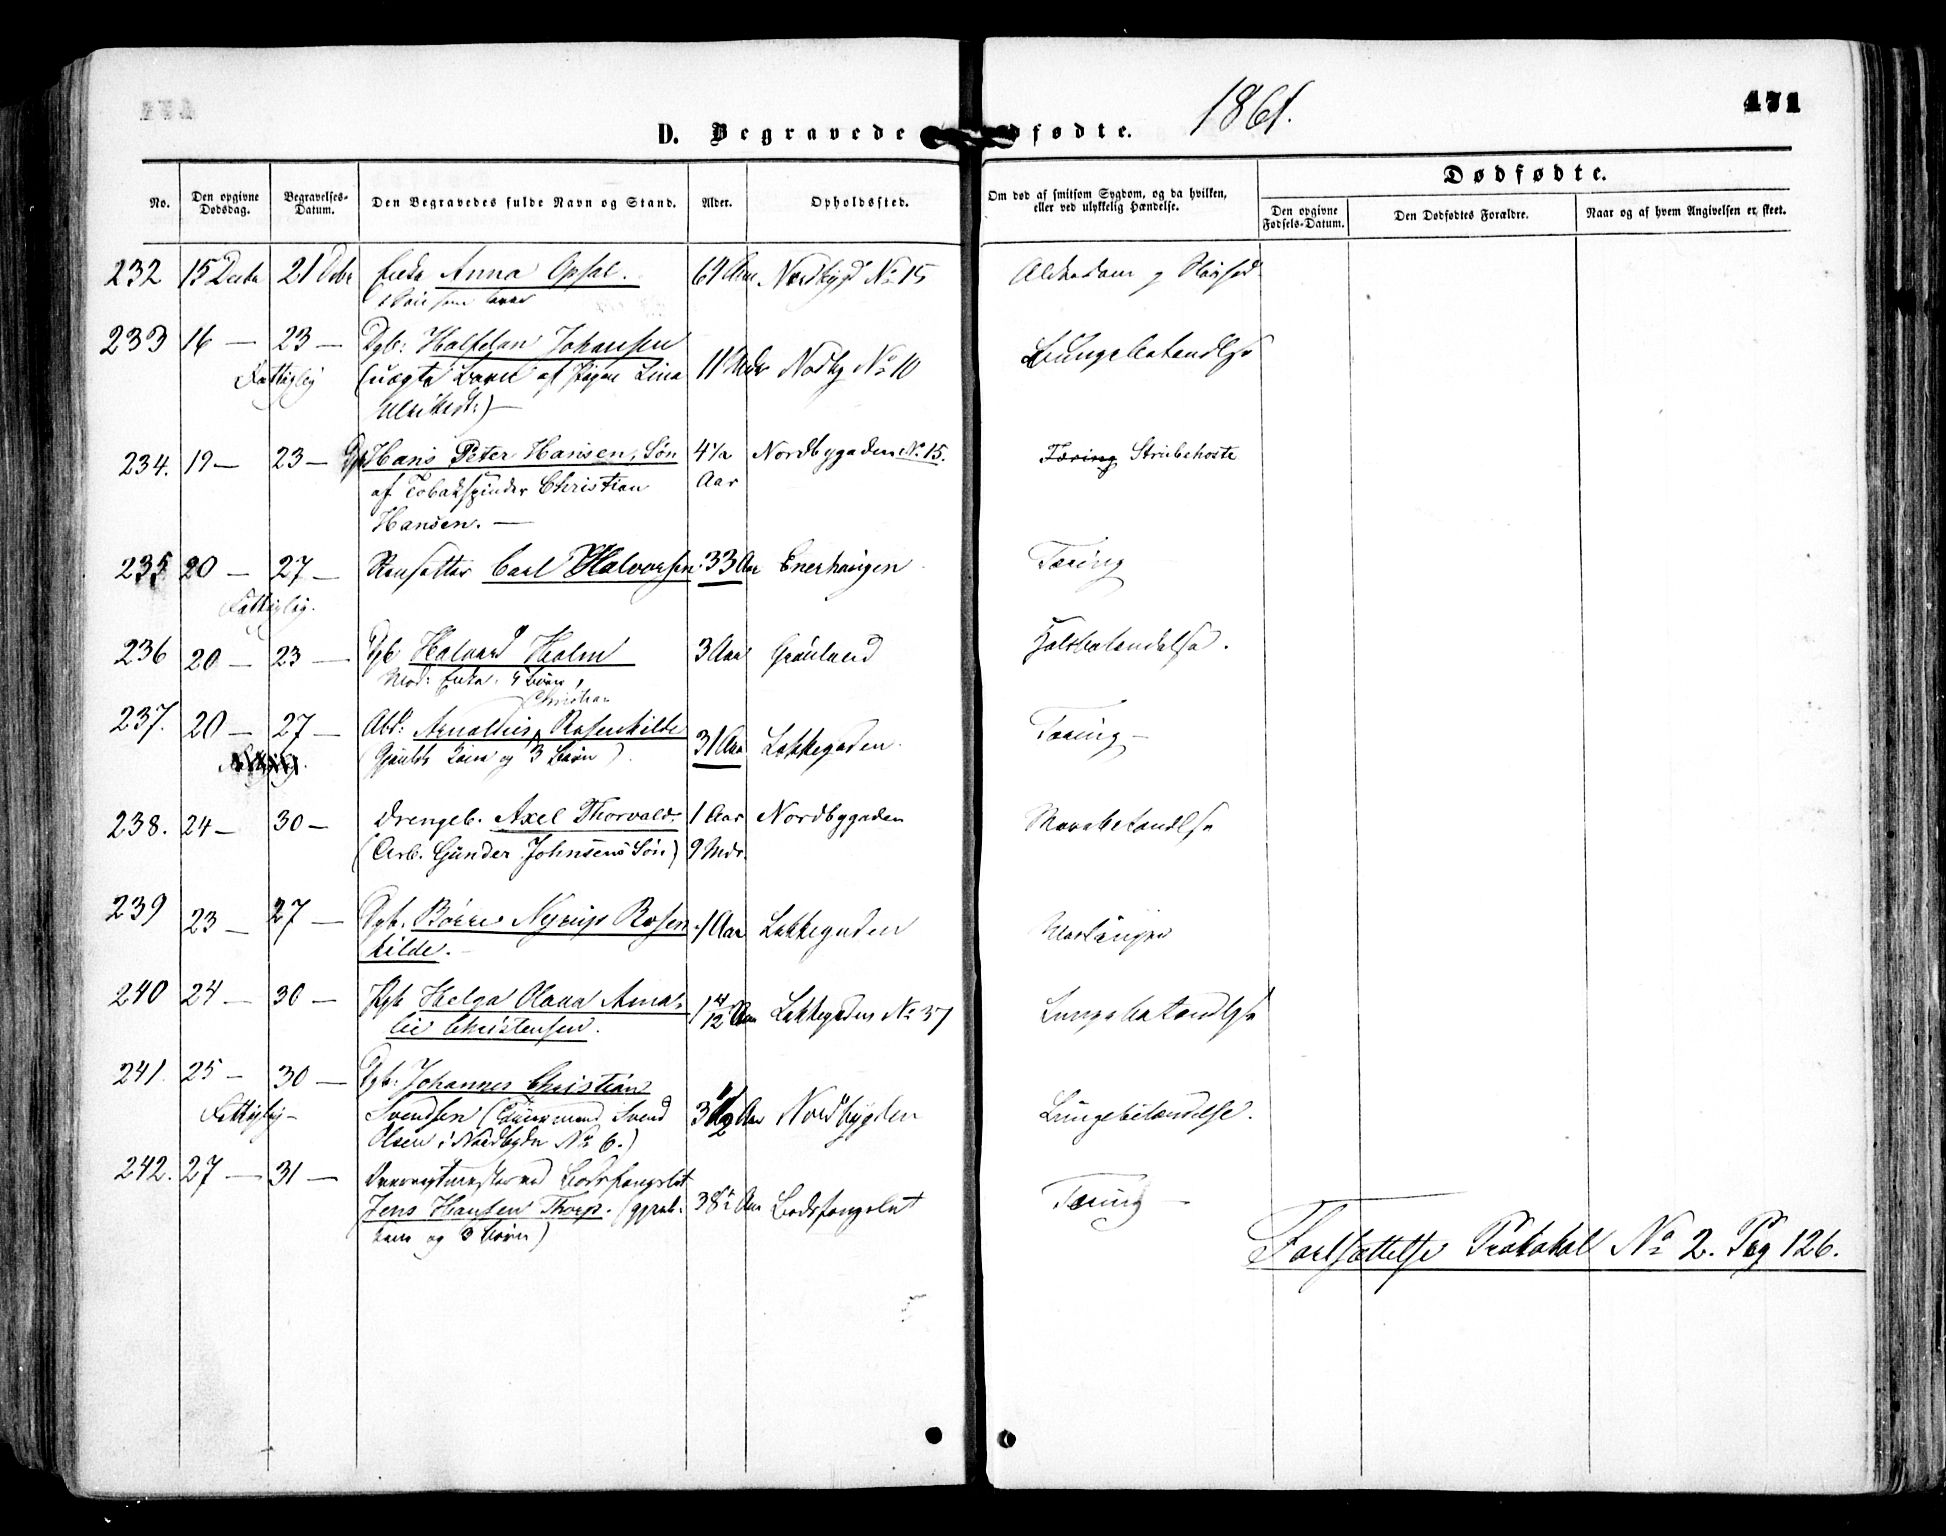 1861.
471
D. Begravede
dfødte.
Dødfødte.
No.
Den opgivne Dødsdag.
Begravelses-Datum.
Den Begravedes fulde Navn og Stand.
Alder.
Opholdssted.
Om død af smitsom Sygdom, og da hvilken, eller ved ulykkelig Hændelse.
Den opgivne Fødsels-Datum.
Den Dødfødtes Forældre.
Naar og af hvem Angivelsen er skeet.
232 15 21 Dcbr Enke Anna Opsal. 64 Aar Nordbygd No 15 Alderdom og
233 16 — 23 — Dgb: Halfdan Johansen 11 Mdr Nodby No 10 Lungebetændlse
Fattiglig (uægte Barn af Pigen Lina
234. 19 — 23 — Hans Peter Hansen, Søn 4½ Aar Nordbygaden No 15. Tæring Strubehoste
af Tobakspinder Christian
Hansen. —
235 20 — 27 — Carl Halvorsen 33 Aar Enerhaugen Tæring
Fattiglig.
236 20 — 23 — Dgb Halvard Holm 3 Aar Grønland Halsbetændelse.
Mod: Enke. 4 Børn
Christian
237. 20 — 27 — Arb: Arnoldus Rosenkilde 31 Aar Lakkegaden. Tæring —
og 3 Børn)
238. 24 — 30 — Drengeb. Axel Thorvald, 1 Aar 9 Mdr. Nordbygaden Mavebetændlse
(Arb. Gunder Johnsens Søn)
239 23 — 27 — Dgb. Børre Nyrup Rosen 1 Aar Lakkegaden
kilde. —
240 24 — 30 — Pgb Helga Olava Ama- 1 4/12 Aar Lakkegaden No 37 Lungebetændlse
lie Christensen.
241. 25 — 30 — Dgb: Johannes Christian
Fattiglig — Svendsen ( Svend 3½ Aar Nordbygden Lungebetændelse.
Olsen i Nordbygdn No 6.)
242. 27 — 31 — Bodsfængslet
Jens Hansen Thorp. (gift: 38½ Aar Bodsfængslet Tæring —
og 3 Børn)
Fortsættelse Protokol No 2. Pag 126.